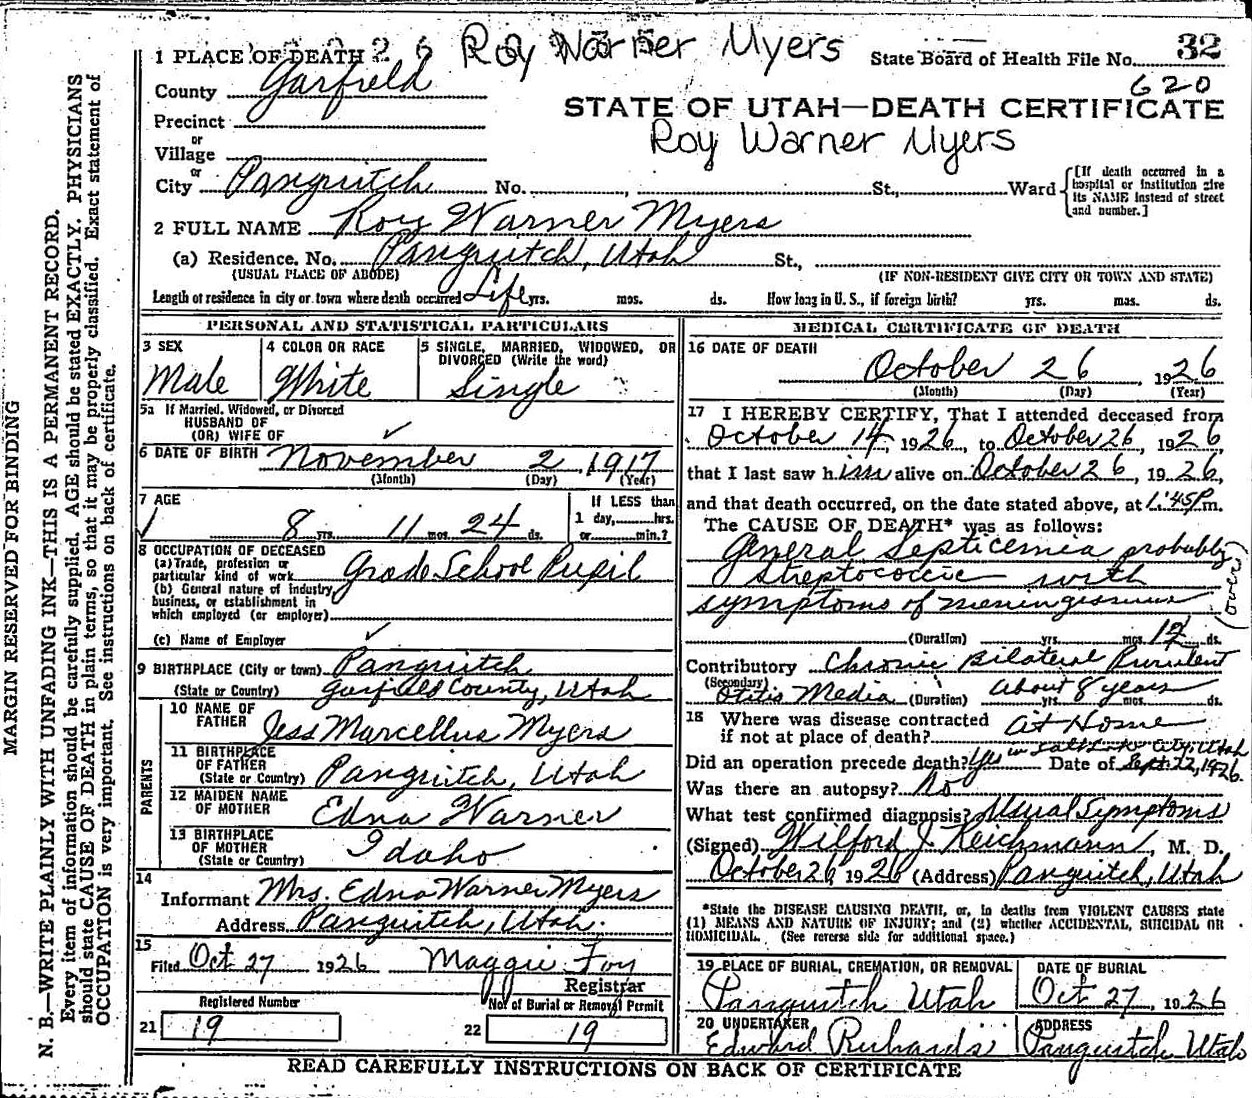 Roy Warner Myers
State Board of Health File No. 32
620
1 PLACE OF DEATH
County Garfield
STATE OF UTAH—DEATH CERTIFICATE
Precinct
Roy Warner Myers
or
Village
or
City Panguitch No. , St., Ward
[If death occurred in a hospital or institution give its NAME instead of street and number.]
2 FULL NAME Roy Warner Myers
(a) Residence. No. Panguitch, Utah St.,
(USUAL PLACE OF ABODE) (IF NON-RESIDENT GIVE CITY OR TOWN AND STATE)
Length of residence in city or town where death occurred Life yrs. mos. ds. How long in U. S., if foreign birth? yrs. mos. ds.
PERSONAL AND STATISTICAL PARTICULARS
3 SEX Male
4 COLOR OR RACE White
5 SINGLE, MARRIED, WIDOWED, OR DIVORCED (Write the word) Single
5a If Married, Widowed, or Divorced
HUSBAND OF
(OR) WIFE OF
6 DATE OF BIRTH November 2, 1917
(Month) (Day) (Year)
7 AGE 8 yrs. 11 mos. 24 ds.
If LESS than
1 day, hrs.
or min.?
8 OCCUPATION OF DECEASED
(a) Trade, profession or
particular kind of work Grade School Pupil
(b) General nature of industry,
business, or establishment in
which employed (or employer)
(c) Name of Employer
9 BIRTHPLACE (City or town) Panguitch
(State or Country) Garfield County, Utah
PARENTS
10 NAME OF
FATHER Jess Marcellus Myers
11 BIRTHPLACE
OF FATHER
(State or Country) Panguitch, Utah
12 MAIDEN NAME
OF MOTHER Edna Warner
13 BIRTHPLACE
OF MOTHER
(State or Country) Idaho
14
Informant Mrs. Edna Warner Myers
Address Panguitch, Utah.
15
Filed Oct 27 1926 Maggie Foy
Registrar
Registered Number
21 19
No. of Burial or Removal Permit
22 19
MEDICAL CERTIFICATE OF DEATH
16 DATE OF DEATH
October 26, 1926
(Month) (Day) (Year)
17 I HEREBY CERTIFY, That I attended deceased from
October 14, 1926, to October 26, 1926,
that I last saw him alive on October 26, 1926,
and that death occurred, on the date stated above, at 1:45 P.m.
The CAUSE OF DEATH* was as follows:
General Septicemia probably
streptococcic with
symptoms of meningismus
(over)
(Duration) yrs. mos. 12 ds.
Contributory Chronic Bilateral Purulent
(Secondary)
Otitis Media (Duration) About 8 years yrs. mos. ds.
18 Where was disease contracted
if not at place of death? At Home
Did an operation precede death? Yes in Salt Lake City, Utah Date of Sept. 22, 1926.
Was there an autopsy? No
What test confirmed diagnosis? Usual Symptoms
(Signed) Wilford J. Reichmann, M. D.
October 26, 1926 (Address) Panguitch, Utah
*State the DISEASE CAUSING DEATH, or, in deaths from VIOLENT CAUSES state
(1) MEANS AND NATURE OF INJURY; and (2) whether ACCIDENTAL, SUICIDAL OR
HOMICIDAL. (See reverse side for additional space.)
19 PLACE OF BURIAL, CREMATION, OR REMOVAL
Panguitch Utah
DATE OF BURIAL
Oct 27, 1926
20 UNDERTAKER
Edward Richards
ADDRESS
Panguitch Utah
READ CAREFULLY INSTRUCTIONS ON BACK OF CERTIFICATE
MARGIN RESERVED FOR BINDING
N. B.—WRITE PLAINLY WITH UNFADING INK—THIS IS A PERMANENT RECORD.
Every item of information should be carefully supplied. AGE should be stated EXACTLY. PHYSICIANS
should state CAUSE OF DEATH in plain terms, so that it may be properly classified. Exact statement of
OCCUPATION is very important. See instructions on back of certificate.